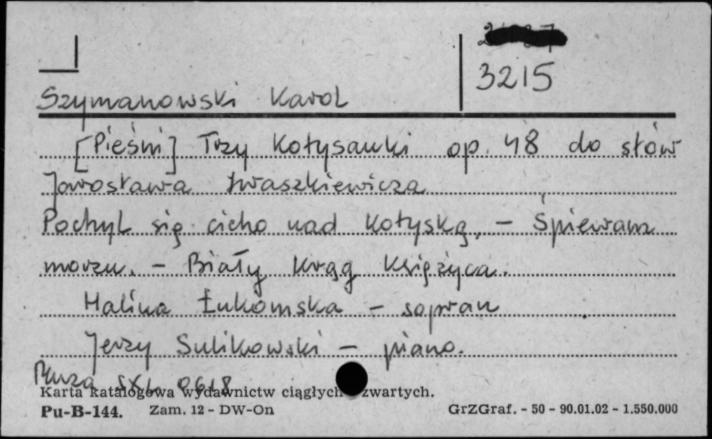 3215
Szymanowski Karol
[Pieśni] Trzy Kołysanki op. 48 do słów
Jarosława Iwaszkiewicza
Pochyl się cicho nad kołyską, – Śpiewam
morzu. – Biały krąg księżyca.
Halina Łukomska – sopran
Jerzy Sulikowski – piano.
Muza SXL 0618
Karta katalogowa wydawnictw ciągłych zwartych.
Pu-B-144. Zam. 12 - DW-On GrZGraf. - 50 - 90.01.02 - 1.550.000